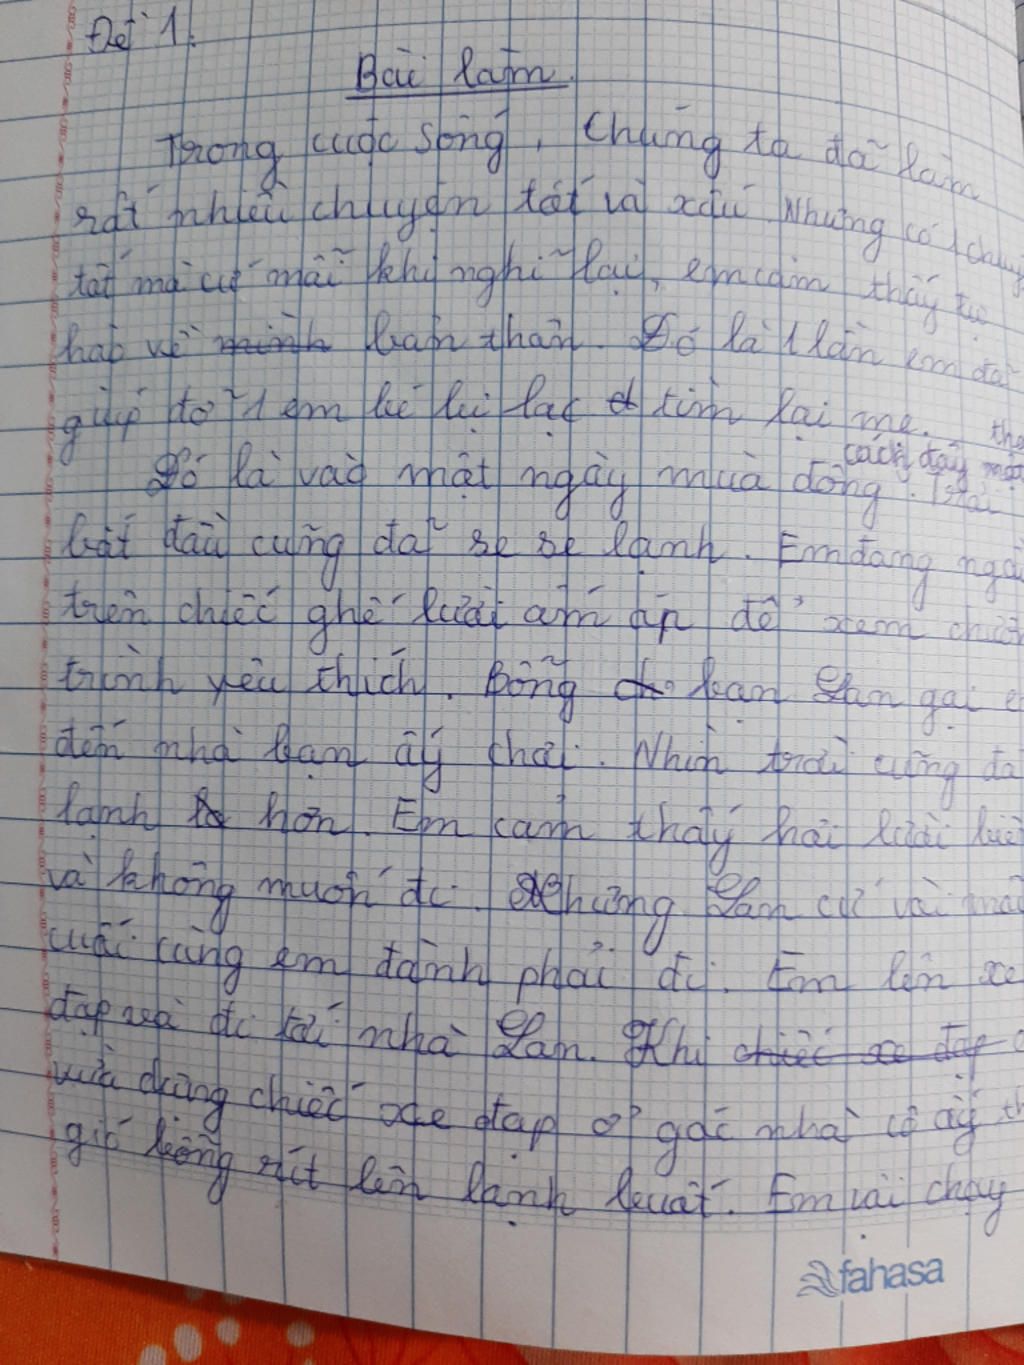 Đề 1.
Bài làm.
Trong cuộc sống, chúng ta đã làm
rất nhiều chuyện tốt và xấu. Nhưng có 1 chuyện
tốt mà cứ mỗi khi nghĩ lại, em cảm thấy tự
hào về mình bản thân. Đó là 1 lần em đã
giúp đỡ 1 em bé bị lạc tìm lại mẹ.
cách đây một
Đó là vào một ngày mùa đông. Trời
bắt đầu cũng đã se se lạnh. Em đang ngồi
trên chiếc ghế lười ấm áp để xem chương
trình yêu thích. Bỗng bạn Lan gọi
đến nhà bạn ấy chơi. Nhìn trời cũng đã
lạnh hơn. Em cảm thấy hơi lười
và không muốn đi. Nhưng Lan cứ
cuối cùng em đành phải đi. Em lên xe
đạp và đi tới nhà Lan. Khi chiếc xe đạp
vừa dừng chiếc xe đạp ở gốc nhà cô ấy
gió bỗng rít lên lạnh buốt. Em chạy
fahasa